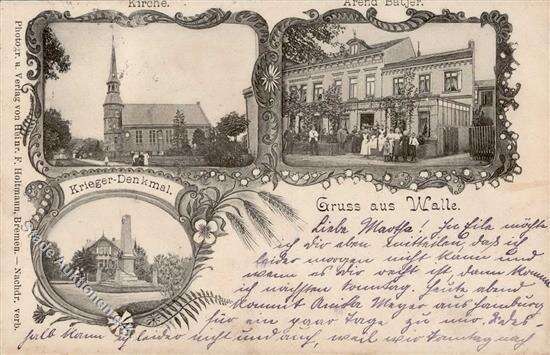 Kirche.
Arend Bätjer.
Photogr. u. Verlag von Heinr. F. Holtmann, Bremen. — Nachdr. verb.
Krieger-Denkmal.
Gruss aus Walle.
Liebe Martha! In Eile möchte
ich dir eben mitteilen, daß ich
leider morgen nicht kann und
wenn es dir recht ist, dann komme
ich nächsten Sonntag. Heute abend
kommt Meyer aus Hamburg
für ein paar Tage zu mir. Des-
halb kann ich leider nicht und auch, weil wir Sonntag nach